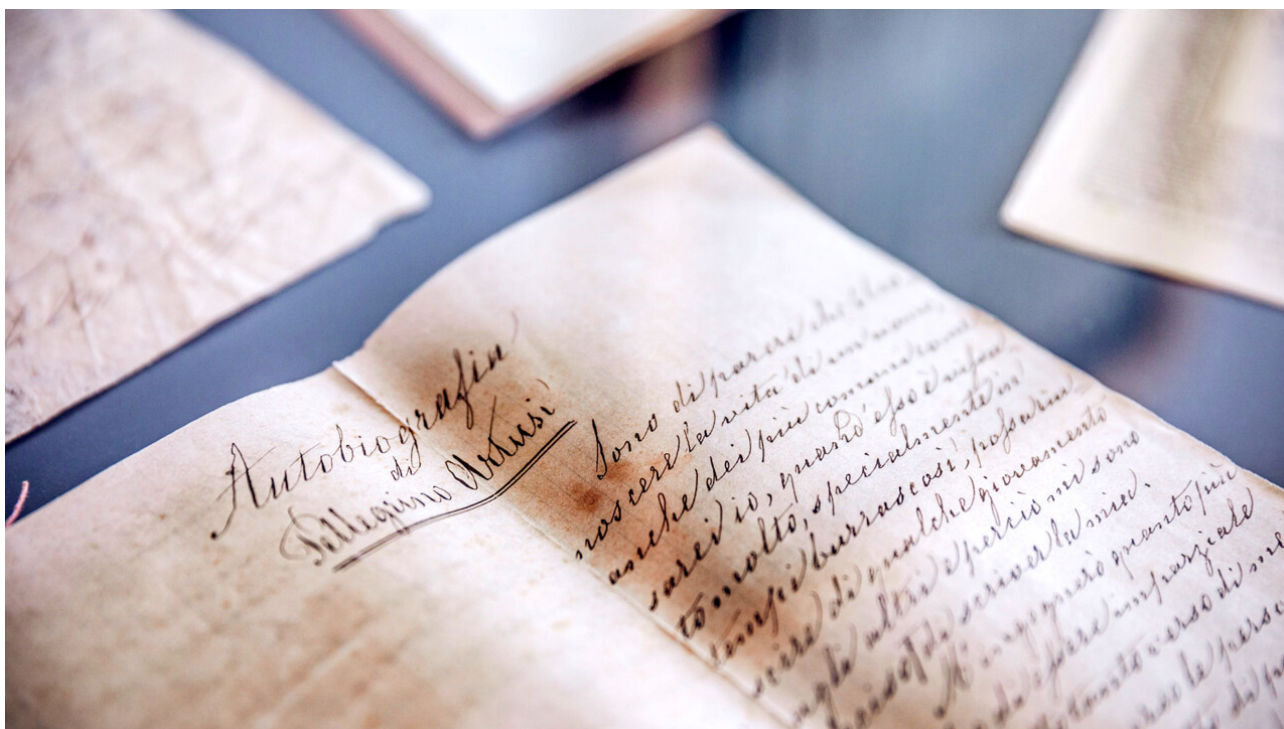 Autobiografia
di
Pellegrino Artusi
Sono di parere che il co
noscere la vita di un uomo,
anche dei più comuni come
sarei io, quand'esso è vissu
to molto, specialmente in
tempi burrascosi, possa riu
scire di qualche giovamento
agli altri e perciò mi sono
deciso di scriver la mia.
M'ingegnerò quanto più
da essere imparziale
tanto verso di me
verso le perso
di